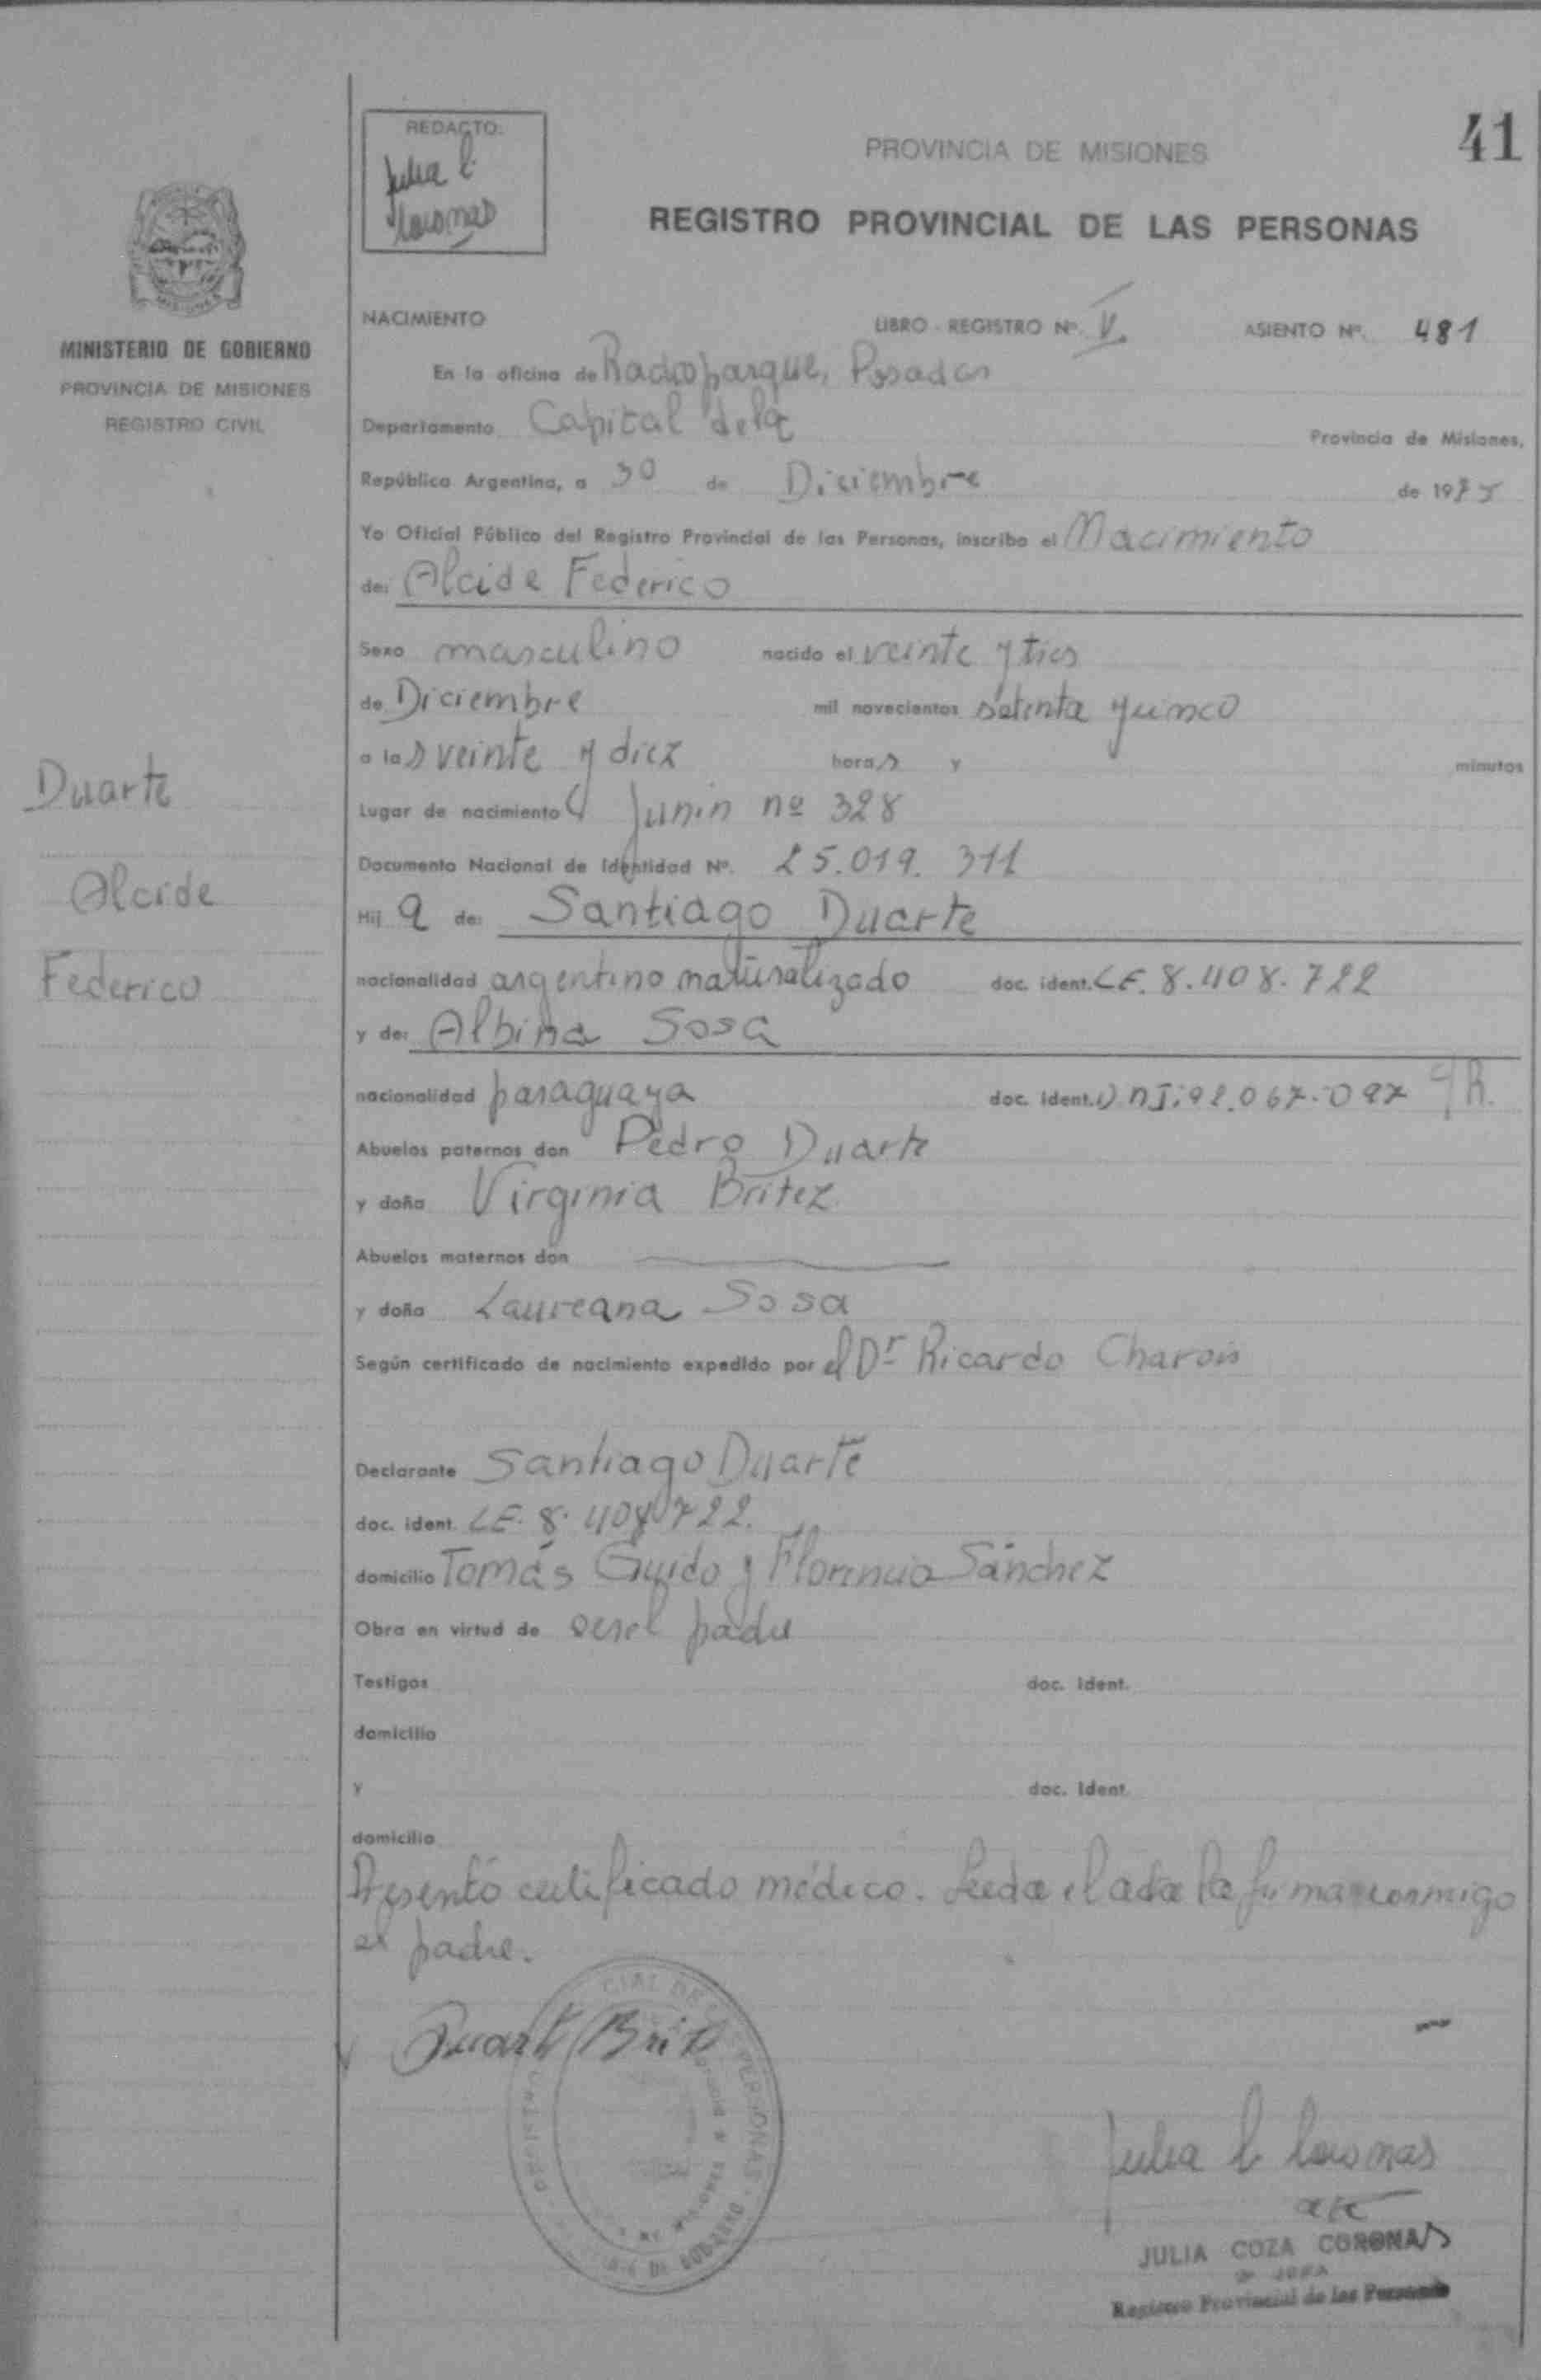 41
REDACTO:
Julia C.
Coronas
PROVINCIA DE MISIONES
REGISTRO PROVINCIAL DE LAS PERSONAS
MINISTERIO DE GOBIERNO
PROVINCIA DE MISIONES
REGISTRO CIVIL
NACIMIENTO LIBRO - REGISTRO Nº. V. ASIENTO Nº. 481
En la oficina de Radioparque, Posadas
Departamento Capital de la Provincia de Misiones,
República Argentina, a 30 de Diciembre de 1975
Yo Oficial Público del Registro Provincial de las Personas, inscribo el Nacimiento
de: Alcide Federico
Sexo masculino nacido el veinte y tres
de Diciembre mil novecientos setenta y cinco
a las veinte y diez horas y minutos
Duarte
Alcide
Federico
Lugar de nacimiento Junin nº 328
Documento Nacional de Identidad Nº. 25.019.311
Hij o de: Santiago Duarte
nacionalidad argentino naturalizado doc. ident. LE. 8.408.722
y de: Albina Sosa
nacionalidad paraguaya doc. ident. DNI: 92.067.097
Abuelos paternos don Pedro Duarte
y doña Virginia Britez
Abuelos maternos don
y doña Laureana Sosa
Según certificado de nacimiento expedido por el Dr Ricardo
Declarante Santiago Duarte
doc. ident. LE. 8.408.722.
domicilio Tomás Guido y Florencio Sánchez
Obra en virtud de ser el padre
Testigos doc. ident.
domicilio
y doc. ident.
domicilio
Presentó certificado médico. Leida el acta la firma conmigo
el padre.
Duart Brit
Julia C Coronas
JULIA COZA CORONAS
Registro Provincial de las Personas